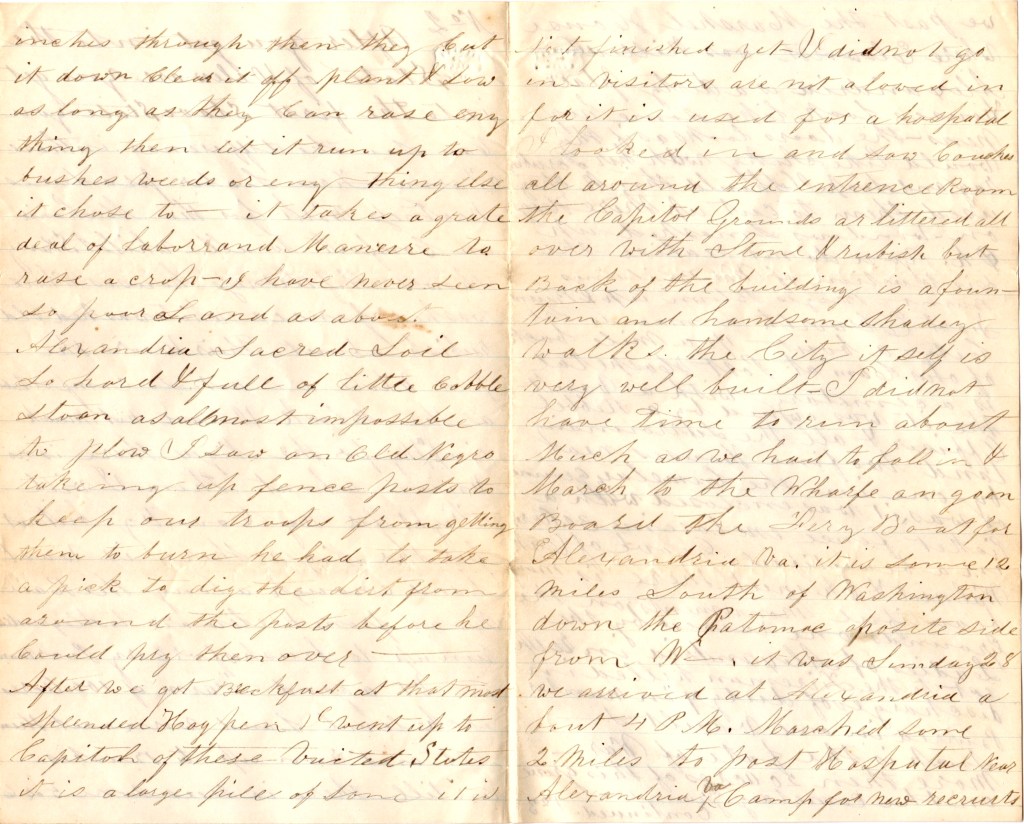 inches through then they Cut
it down Clear it off plant & sow
as long as they Can rase eny
thing then let it run up to
bushes weeds or eny thing else
it chose to — it takes a grate
deal of laborrand Manerre to
rase a crop — I have never seen
so poor Land as about
Alexandria Sacred Soil
So hard & full of little Cobble
stoan as allmost impossible
to plow I saw an Old Negro
takeing up fence posts to
keep our troops from getting
them to burn he had to take
a pick to dig the dirt from
around the posts before he
Could pry them over —
After we got Breckfast at that most
splended Hog pen I went up to
Capitoh of these United States
it is a large pile of Some it is
not finished yet — I did not go
in visitors are not alowed in
for it is used for a hospatal
I looked in and saw Couches
all around the entrence Room
the Capitol Grounds ar littered all
over with Stone & rubish but
Back of the building is a foun-
tain and handsome shadey
walks. the City it self is
very well built — I did not
have time to run about
Much as we had to fall in &
March to the Wharfe an go on
Board the Fery Boat for
Alexandria Va. it is some 12
miles South of Washington
down the Patomac oposite side
from W— . it was Sunday 28
we arrived at Alexandria a
bout 4 P.M. Marched some
2 miles to post Hosputal Near
Alexandria Va Camp for new recruits